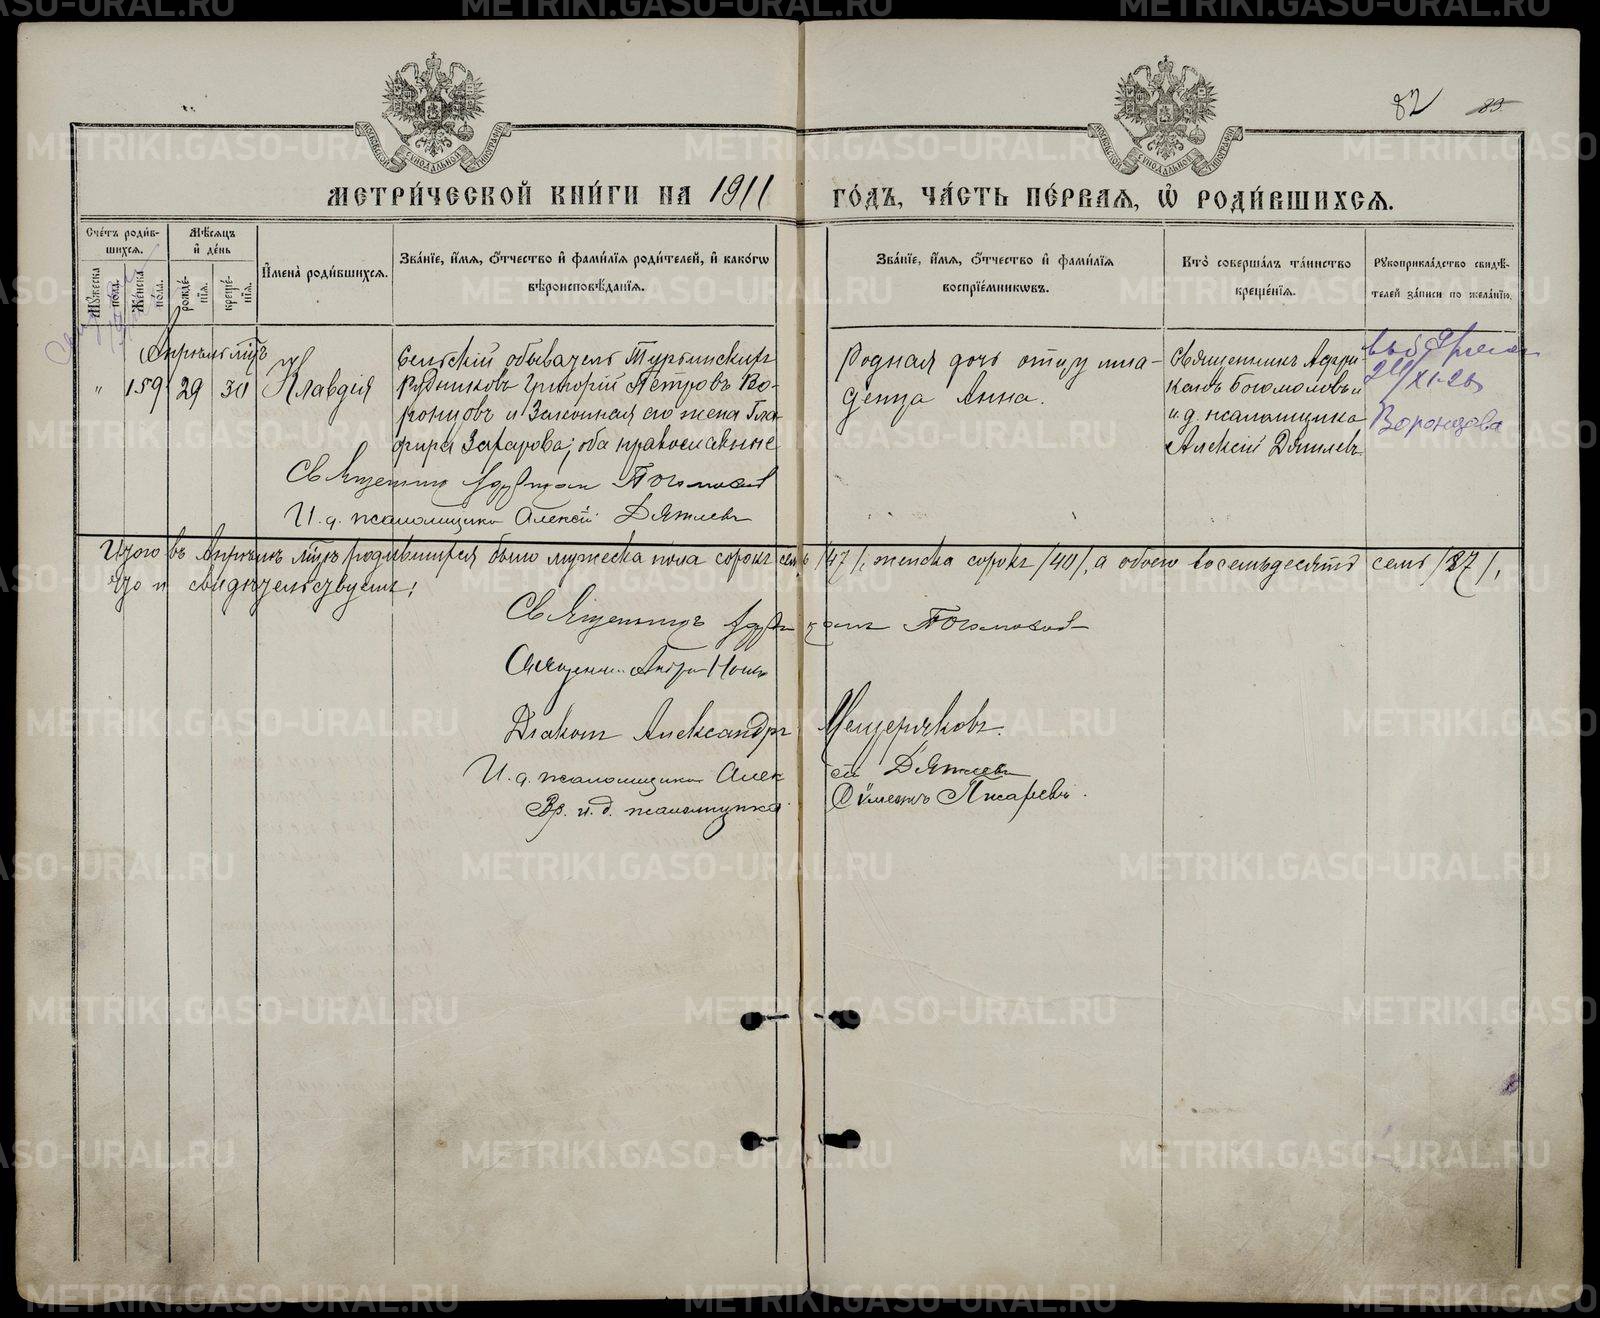 82 83
МОСКОВСКОЙ СѴНОДАЛЬНОЙ ТИПОГРАФІИ
МОСКОВСКОЙ СѴНОДАЛЬНОЙ ТИПОГРАФІИ
МЕТРИ́ЧЕСКОЙ КНИ́ГИ НА 1911 ГО́ДЪ, ЧА́СТЬ ПЕ́РВАЯ, Ѡ҆ РОДИ́ВШИХСЯ.
Сче́тъ роди́в-
шихся.
Мꙋ́жеска по́ла.
Же́нска по́ла.
Мѣ́сяцъ
и҆ де́нь
рожде́-
нїя.
креще́-
нїя.
И҆мена̀ роди́вшихся.
Зва́нїе, и҆́мя, ѻ҆́тчество и҆ фами́лїя роди́телей, и҆ како́гѡ
вѣроисповѣ́данїя.
Зва́нїе, и҆́мя, ѻ҆́тчество и҆ фами́лїя
воспрїе́мникѡвъ.
Кто̀ соверша́лъ та́инство
креще́нїя.
Рꙋкоприкла́дство свидѣ́-
телей за́писи по жела́нїю.
Апрѣль мц̃ъ
" 159 29 30 Клавдія
Сельскій обыватель Турьинскихъ
Рудниковъ Григорій Петровъ Во-
ронцовъ и Законная его жена Гла-
фира Захарова; оба православные
Родная дочь отцу мла-
денца Анна.
Священникъ Афри-
канъ Богомоловъ и
и.д. псаломщика
Алексій Дятлевъ.
XI-26
Воронцова
Священникъ Африканъ Богомоловъ
И. д. псаломщика Алексій Дятлевъ
Итого въ Апрѣлѣ мц̃ѣ родившихся было мужеска пола сорокъ семь /47/, женска сорокъ /40/, а обоего восемьдесятъ семь /87/,
что и свидѣтельствуемъ:
Священникъ Африканъ Богомоловъ
Священникъ
Діаконъ Александръ Мещеряковъ.
И. д. псаломщика Алексій Дятлевъ
Вр. и. д. псаломщика Сѵмеонъ Писаревъ.
METRIKI.GASO-URAL.RU